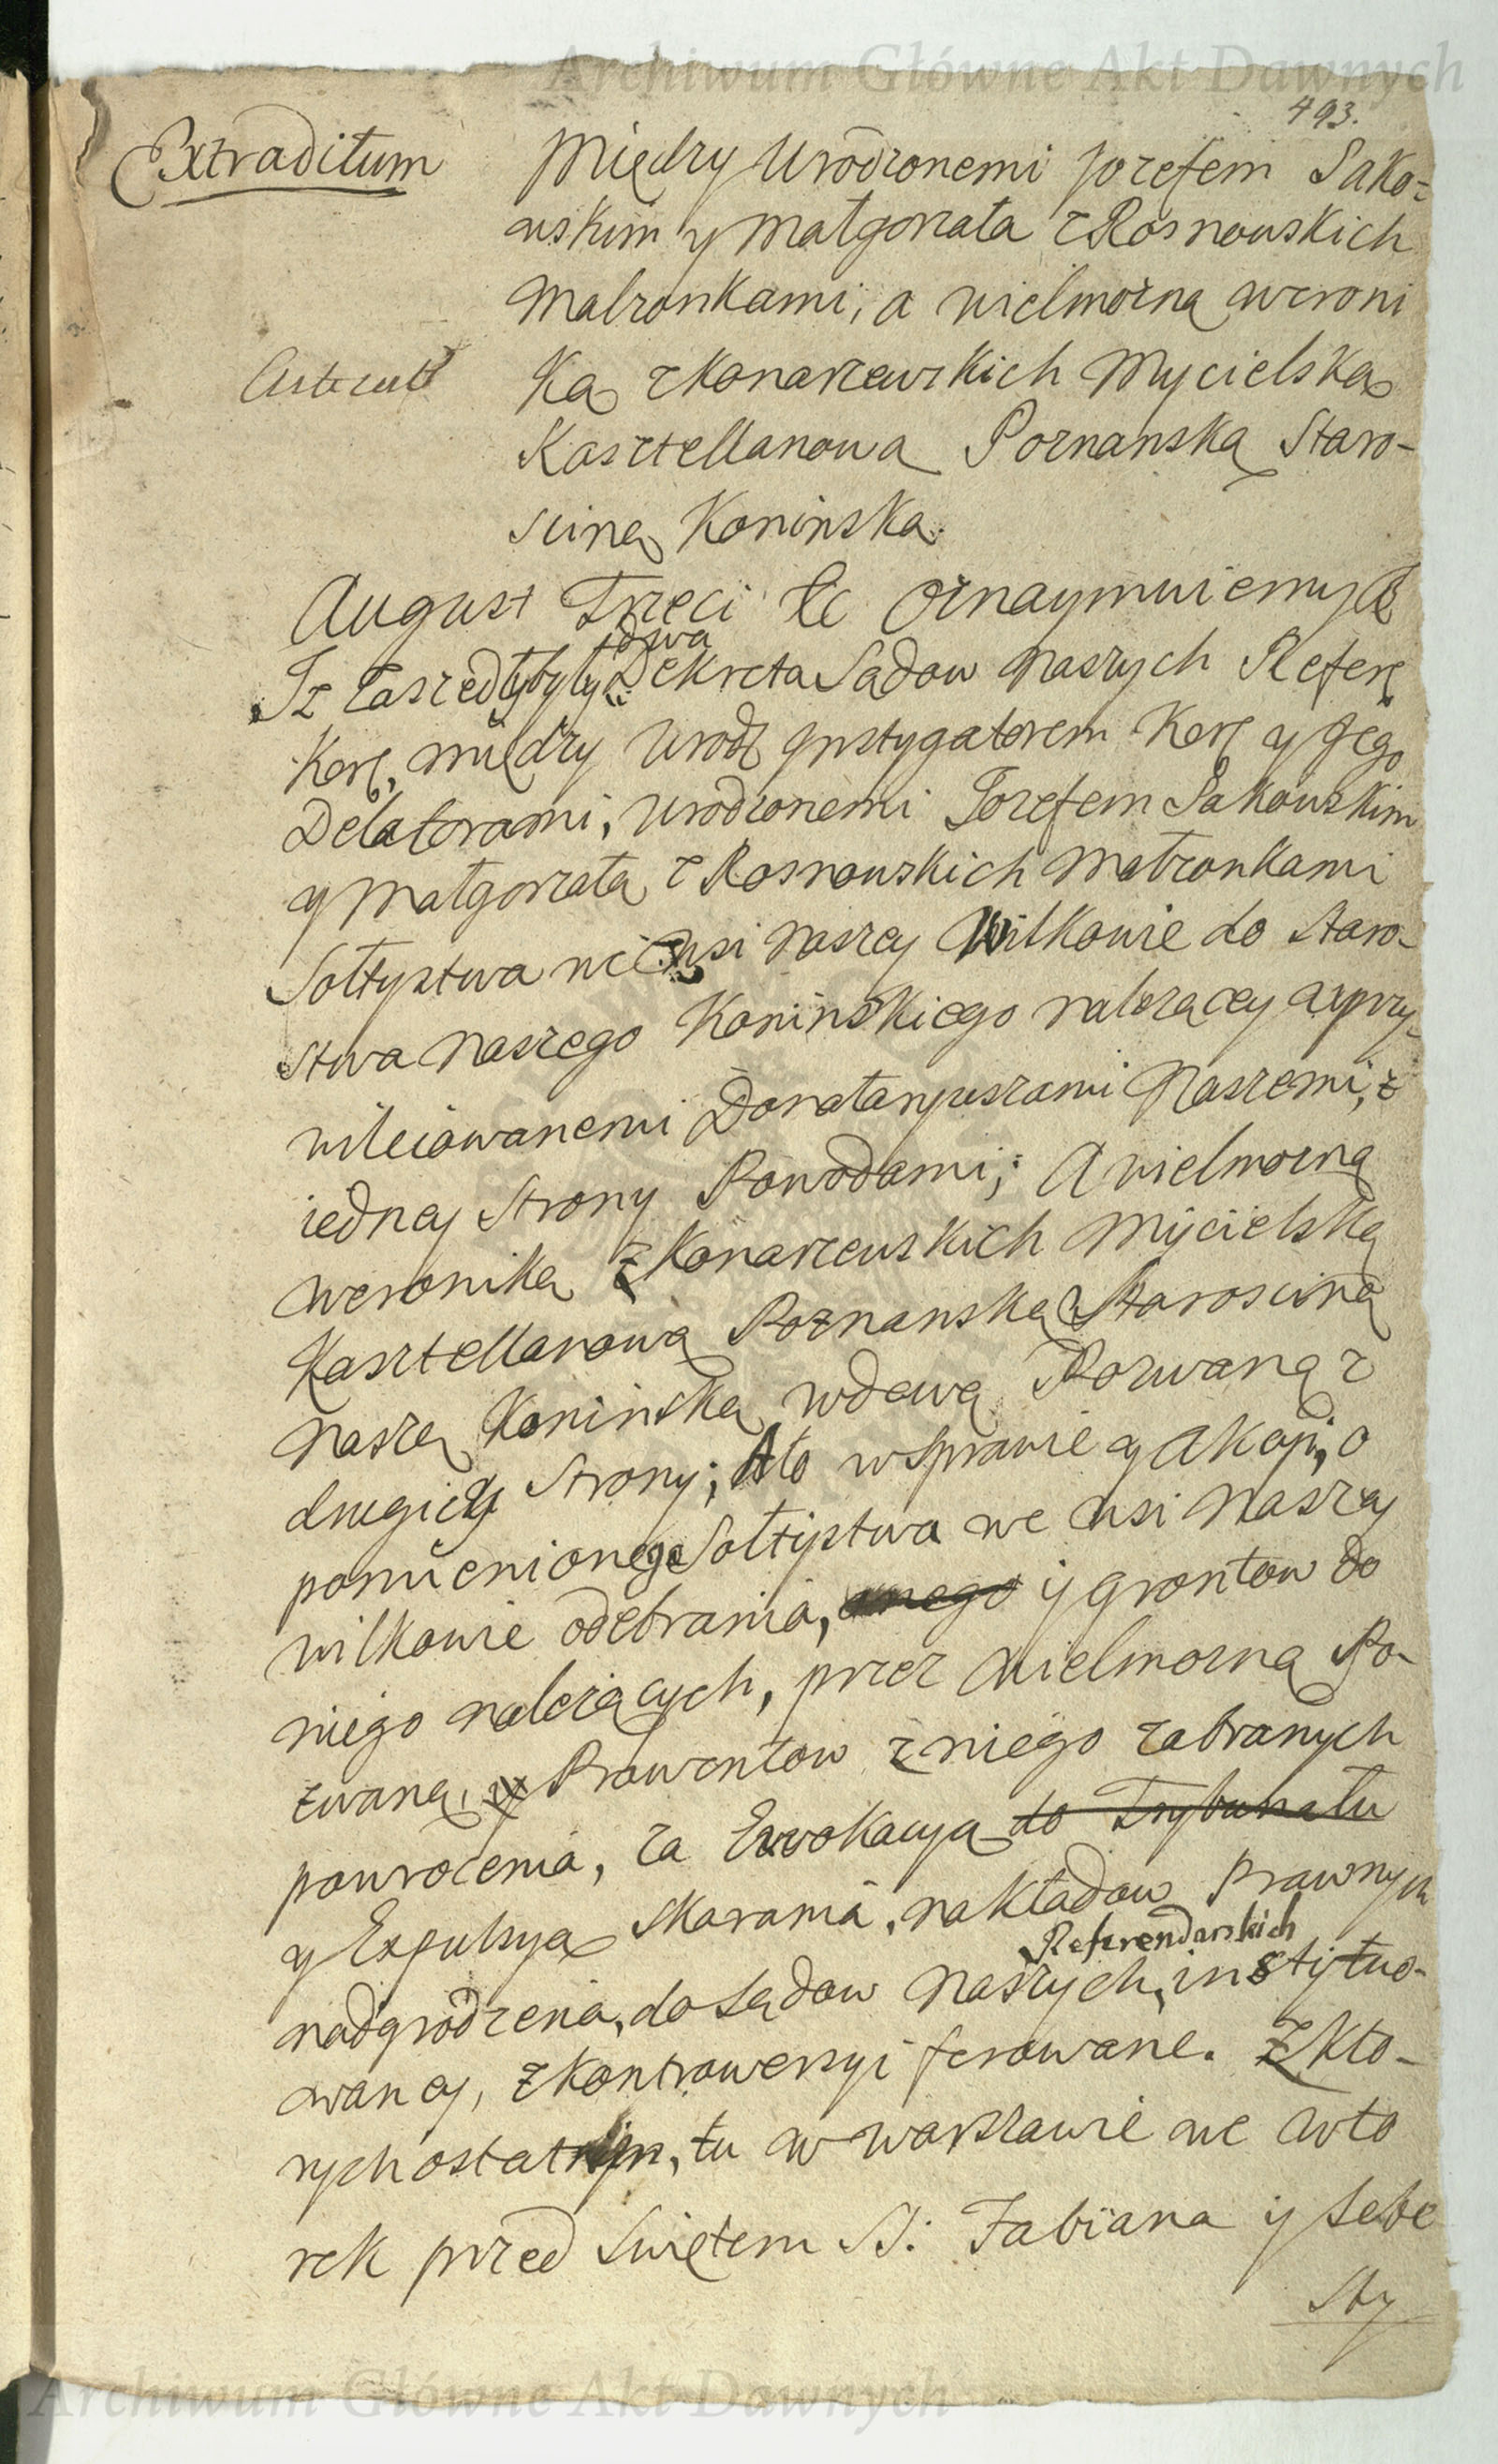 Archiwum Główne Akt Dawnych
493.
Extraditum
Między Urodzonemi Jozefem Sako=
wskim y Małgorzatą z Rosnowskich
Małzonkami, a wielmozną weroni
Ką z Konarzewskich Mycielską
Kasztellanową Poznanską Staro-
sciną Koninską.
August Trzeci &c Oznaymuiemy &
Iz zaszedłyby dwa Dekreta Sądow naszych Refer
Kor, między Urodz Instygatorem Kor y Jego
Delatorami, Urodzonemi Jozefem Sakowskim
y Małgorzatą z Rosnowskich Małzonkami
Sołtystwa we wsi naszey Wilkowie do Staro-
stwa naszego Koninskiego nalezącey uprzy-
wileiowanemi Donataryuszami Naszemi, z
iedney Strony Powodami; A wielmozną
weroniką z Konarzewskich Mycielską
Kasztellanową Poznanską Starosciną
naszą Koninską wdową Pozwaną z
drugiey Strony; A to w sprawie y Akcyi, o
pomienionego Sołtystwa we wsi Naszey
wilkowie odebrania, onego y grontow do
niego nalezących, przez wielmozną Po-
zwaną, y Prowentow z niego zabranych
powrocenia, za Ewokacyą do Trybunału
y Expulsyą Skarania, nakładow prawnych
nadgrodzenia, do Sądow Naszych Referendarskich instytuo-
waney, z kontrowersyi ferowane. Z Kto-
rych ostatni, tu w warszawie we wto
rek przed Swiętem SS: Fabiana y Seba
sty
Archiwum Główne Akt Dawnych